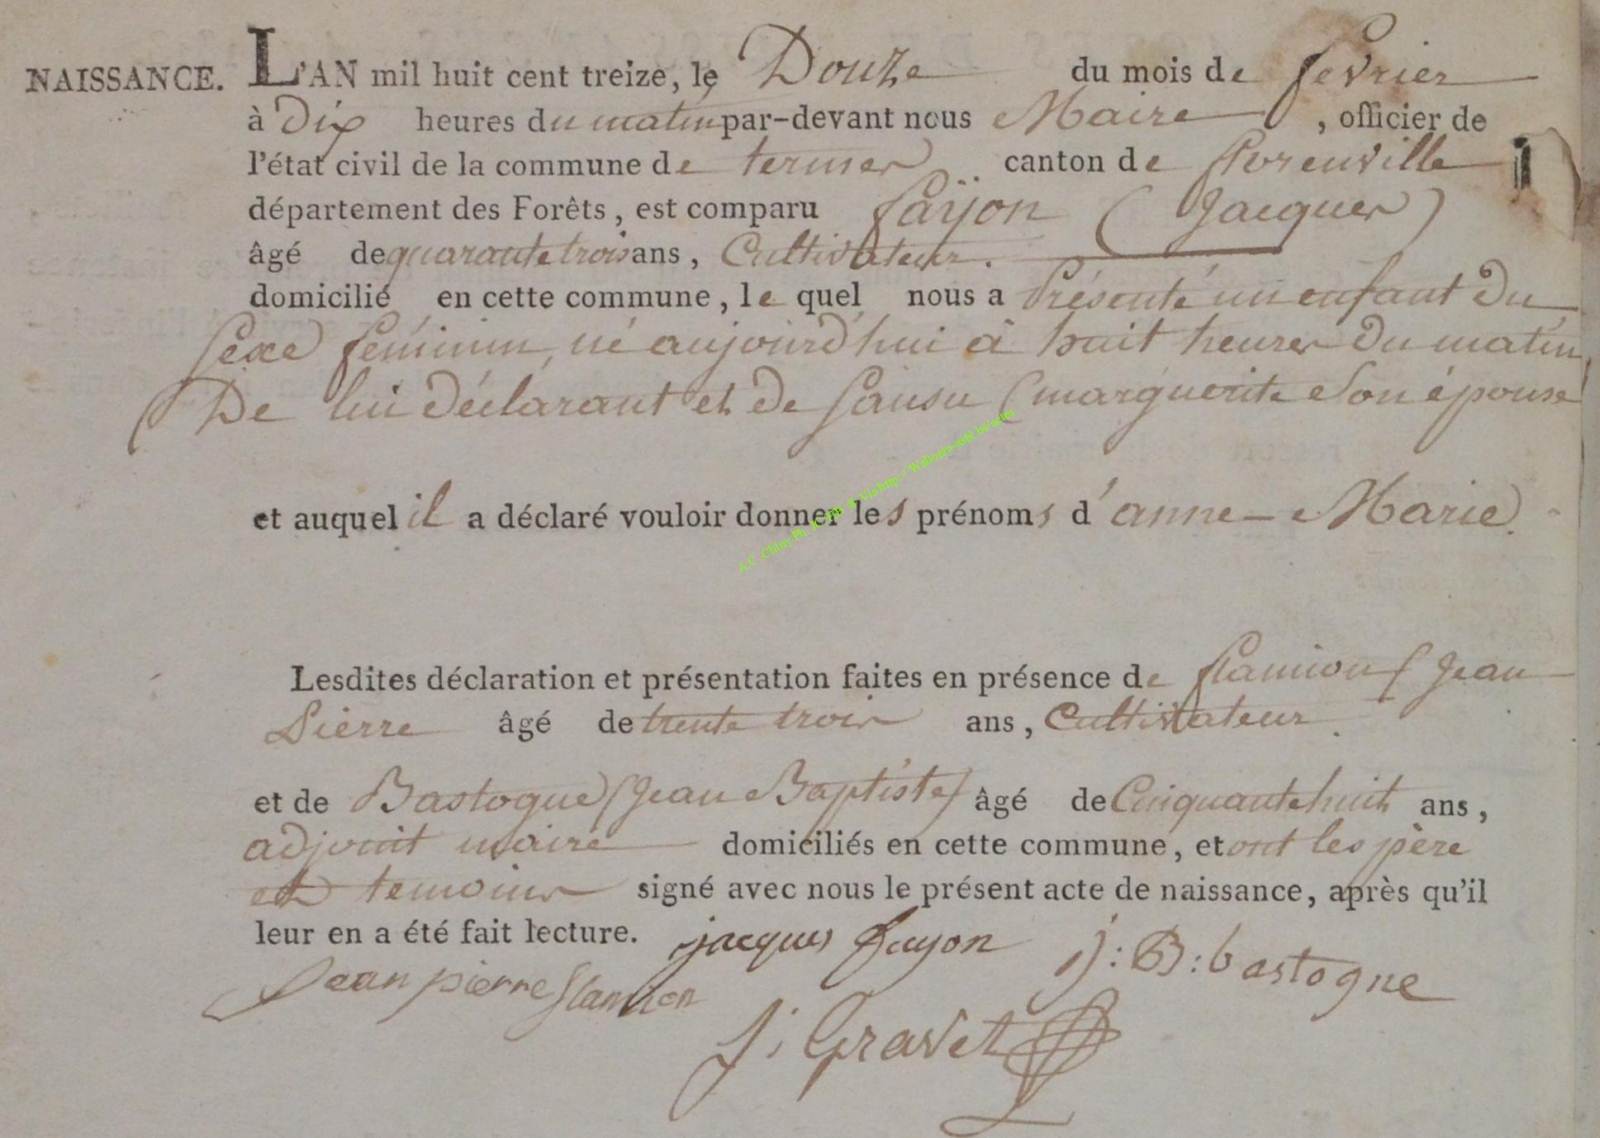 NAISSANCE. L'AN mil huit cent treize, le Douze du mois de fevrier
à Dix heures du matin par-devant nous Maire, officier de
l'état civil de la commune de termes canton de florenville
département des Forêts, est comparu fayon (Jacques)
âgé de quarante trois ans, Cultivateur.
domicilié en cette commune, le quel nous a présenté un enfant du
sexe féminin, né aujourd'hui à huit heures du matin,
De lui déclarant et de (marguerite) son épouse
et auquel il a déclaré vouloir donner les prénoms d'anne-Marie.
Lesdites déclaration et présentation faites en présence de flamion (Jean
Pierre âgé de trente trois ans, Cultivateur.
et de Bastogne (Jean Baptiste) âgé de Cinquante huit ans,
adjoint maire domiciliés en cette commune, et ont les père
et temoins signé avec nous le présent acte de naissance, après qu'il
leur en a été fait lecture. jacques fayon J: B: bastogne
Jean pierre flamion
J: Gravet